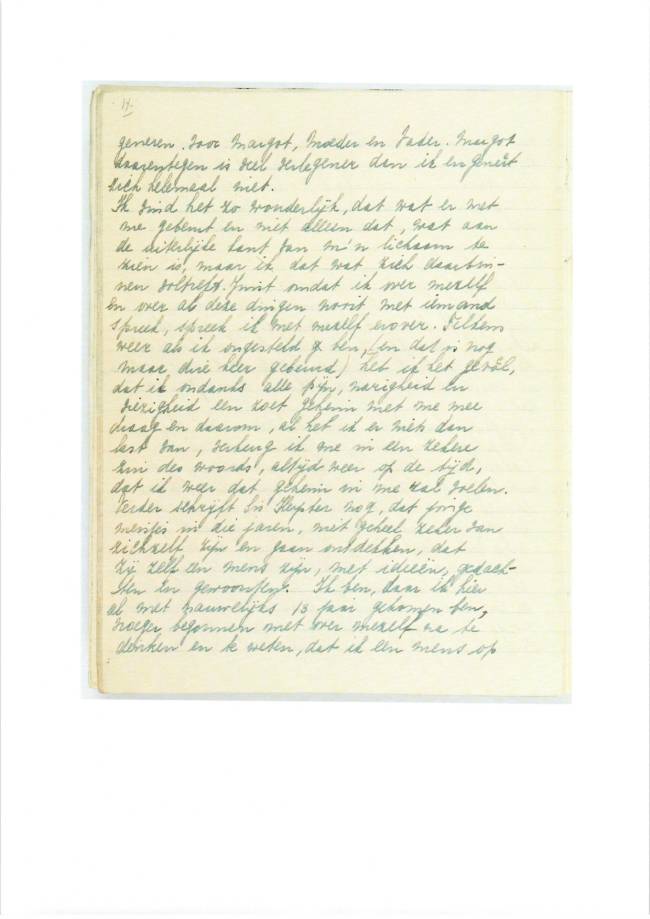 14.
generen voor Margot, Moeder en Vader. Margot
daarentegen is veel verlegener dan ik en geneert
zich helemaal niet.
Ik vind het zo wonderlijk, dat wat er met
me gebeurt en niet alleen dat, wat aan
de uiterlijke kant van m'n lichaam te
zien is, maar ik dat wat zich daarbin-
nen voltrekt. Juist omdat ik over mezelf
en over al deze dingen nooit met iemand
spreek, spreek ik met mezelf erover. Telkens
weer als ik ongesteld ben, (en dat is nog
maar drie keer gebeurd) heb ik het gevoel,
dat ik ondanks alle pijn, narigheid en
viezigheid een zoet geheim met me mee
draag en daarom, al heb ik er niets dan
last van, verheug ik me in een zekere
zin des woords, altijd weer op de tijd,
dat ik weer dat geheim in me zal voelen.
Verder schrijft Sis Heyster nog, dat jonge
meisjes in die jaren, niet geheel zeker van
zichzelf zijn en gaan ontdekken, dat
zij zelf een mens zijn, met ideeën, gedach-
ten en gewoontens. Ik ben, daar ik hier
al met nauwelijks 13 jaar gekomen ben,
vroeger begonnen met over mezelf na te
denken en te weten, dat ik een mens op